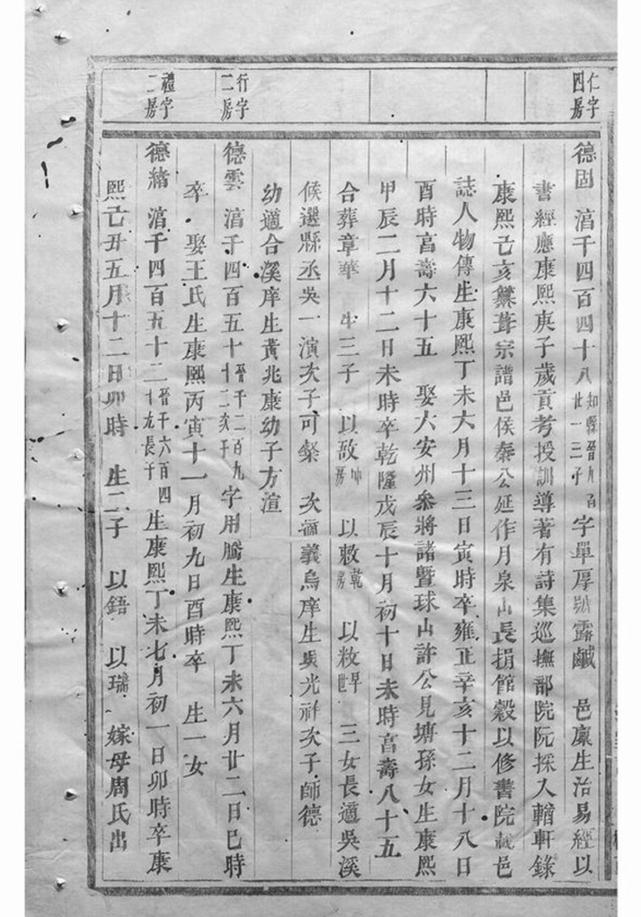 仁字四房
行字二房
禮字二房
德固 湻千四百四十八知縣晉九百廿一三子字單厚號露鹹 邑廩生治易經以
書經應康熙庚子歲貢考授訓導著有詩集巡撫部院阮採入輶軒錄
康熙己亥纂葺宗譜邑侯秦公延作月泉山長捐館穀以修書院載邑
誌人物傳生康熙丁未六月十三日寅時卒雍正辛亥十二月十八日
酉時高壽六十五 娶六安州參將諸暨球山許公見塘孫女生康熙
甲辰二月十二日未時卒乾隆戊辰十月初十日未時高壽八十五
合葬章華 生三子 以故坤房 以敕乾房 以敉早世 三女長適吳溪
候選縣丞吳一演次子可粲 次適義烏庠生吳光祚次子師德
幼適合溪庠生黃兆康幼子方渲
德雲 湻千四百五十晉千二百九十二次子字用騰生康熙丁未六月廿二日巳時
卒 娶王氏生康熙丙寅十一月初九日酉時卒 生一女
德緒 湻千四百五十二晉千六百四十九長子 生康熙丁未七月初一日卯時卒康
熙己丑五月十二日卯時 生二子 以鋙 以瑞 嫁母周氏出